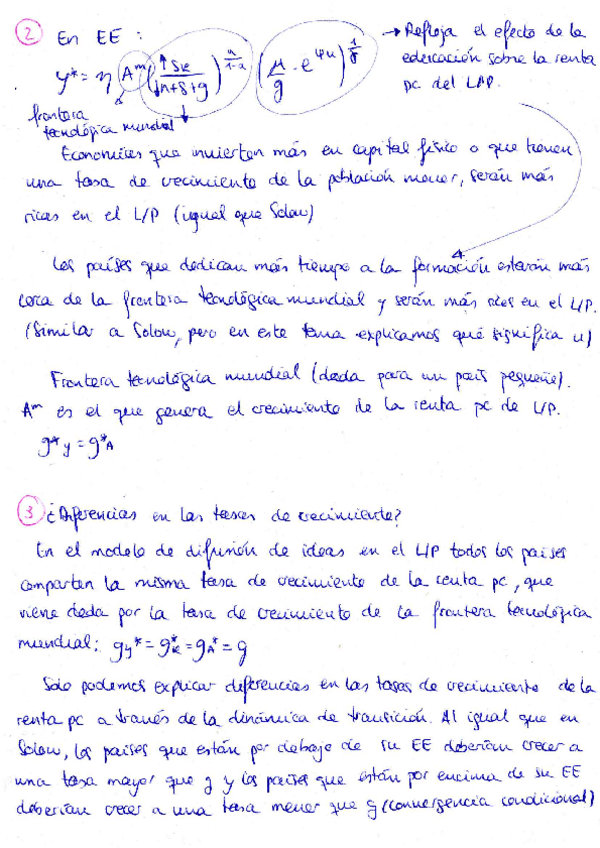 ② En EE :
y* = η A^m (↑sk / ↓n+δ+g)^(α/1-α) (μ/g · e^(ψu))^(1/γ) → Refleja el efecto de la
educación sobre la renta
pc del L/P.
frontera
tecnológica mundial
Economías que invierten más en capital físico o que tienen
una tasa de crecimiento de la población menor, serán más
ricas en el L/P (igual que Solow)
Los países que dedican más tiempo a la formación estarán más
cerca de la frontera tecnológica mundial y serán más ricos en el L/P.
(Similar a Solow, pero en este tema explicamos qué significa u)
Frontera tecnológica mundial (dada para un país pequeño).
A^m es el que genera el crecimiento de la renta pc de L/P.
g*y = g*A
③ ¿Diferencias en las tasas de crecimiento?
En el modelo de difusión de ideas en el L/P todos los países
comparten la misma tasa de crecimiento de la renta pc, que
viene dada por la tasa de crecimiento de la frontera tecnológica
mundial: gy* = gk* = gA* = g
Solo podemos explicar diferencias en las tasas de crecimiento de la
renta pc a través de la dinámica de transición. Al igual que en
Solow, los países que están por debajo de su EE deberían crecer a
una tasa mayor que g y los países que están por encima de su EE
deberían crecer a una tasa menor que g (convergencia condicional)